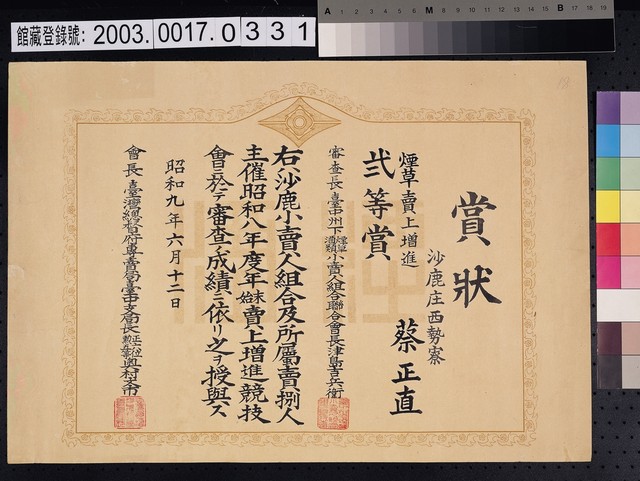 館藏登錄號: 2003.0017.0331
A 1 2 3 4 5 6 M 8 9 10 11 12 13 14 15 B 17 18 19
賞狀
沙鹿庄西勢寮
蔡正直
煙草賣上增進
弐等賞
審查長 臺中州下煙草酒類小賣人組合聯合會長 津島吉兵衛
右ハ沙鹿小賣人組合及所屬賣捌人
主催昭和八年度年末年始賣上增進競技
會ニ於テ審查ノ成績ニ依リ之ヲ授與ス
昭和九年六月十二日
會長 臺灣總督府專賣局臺中支局長